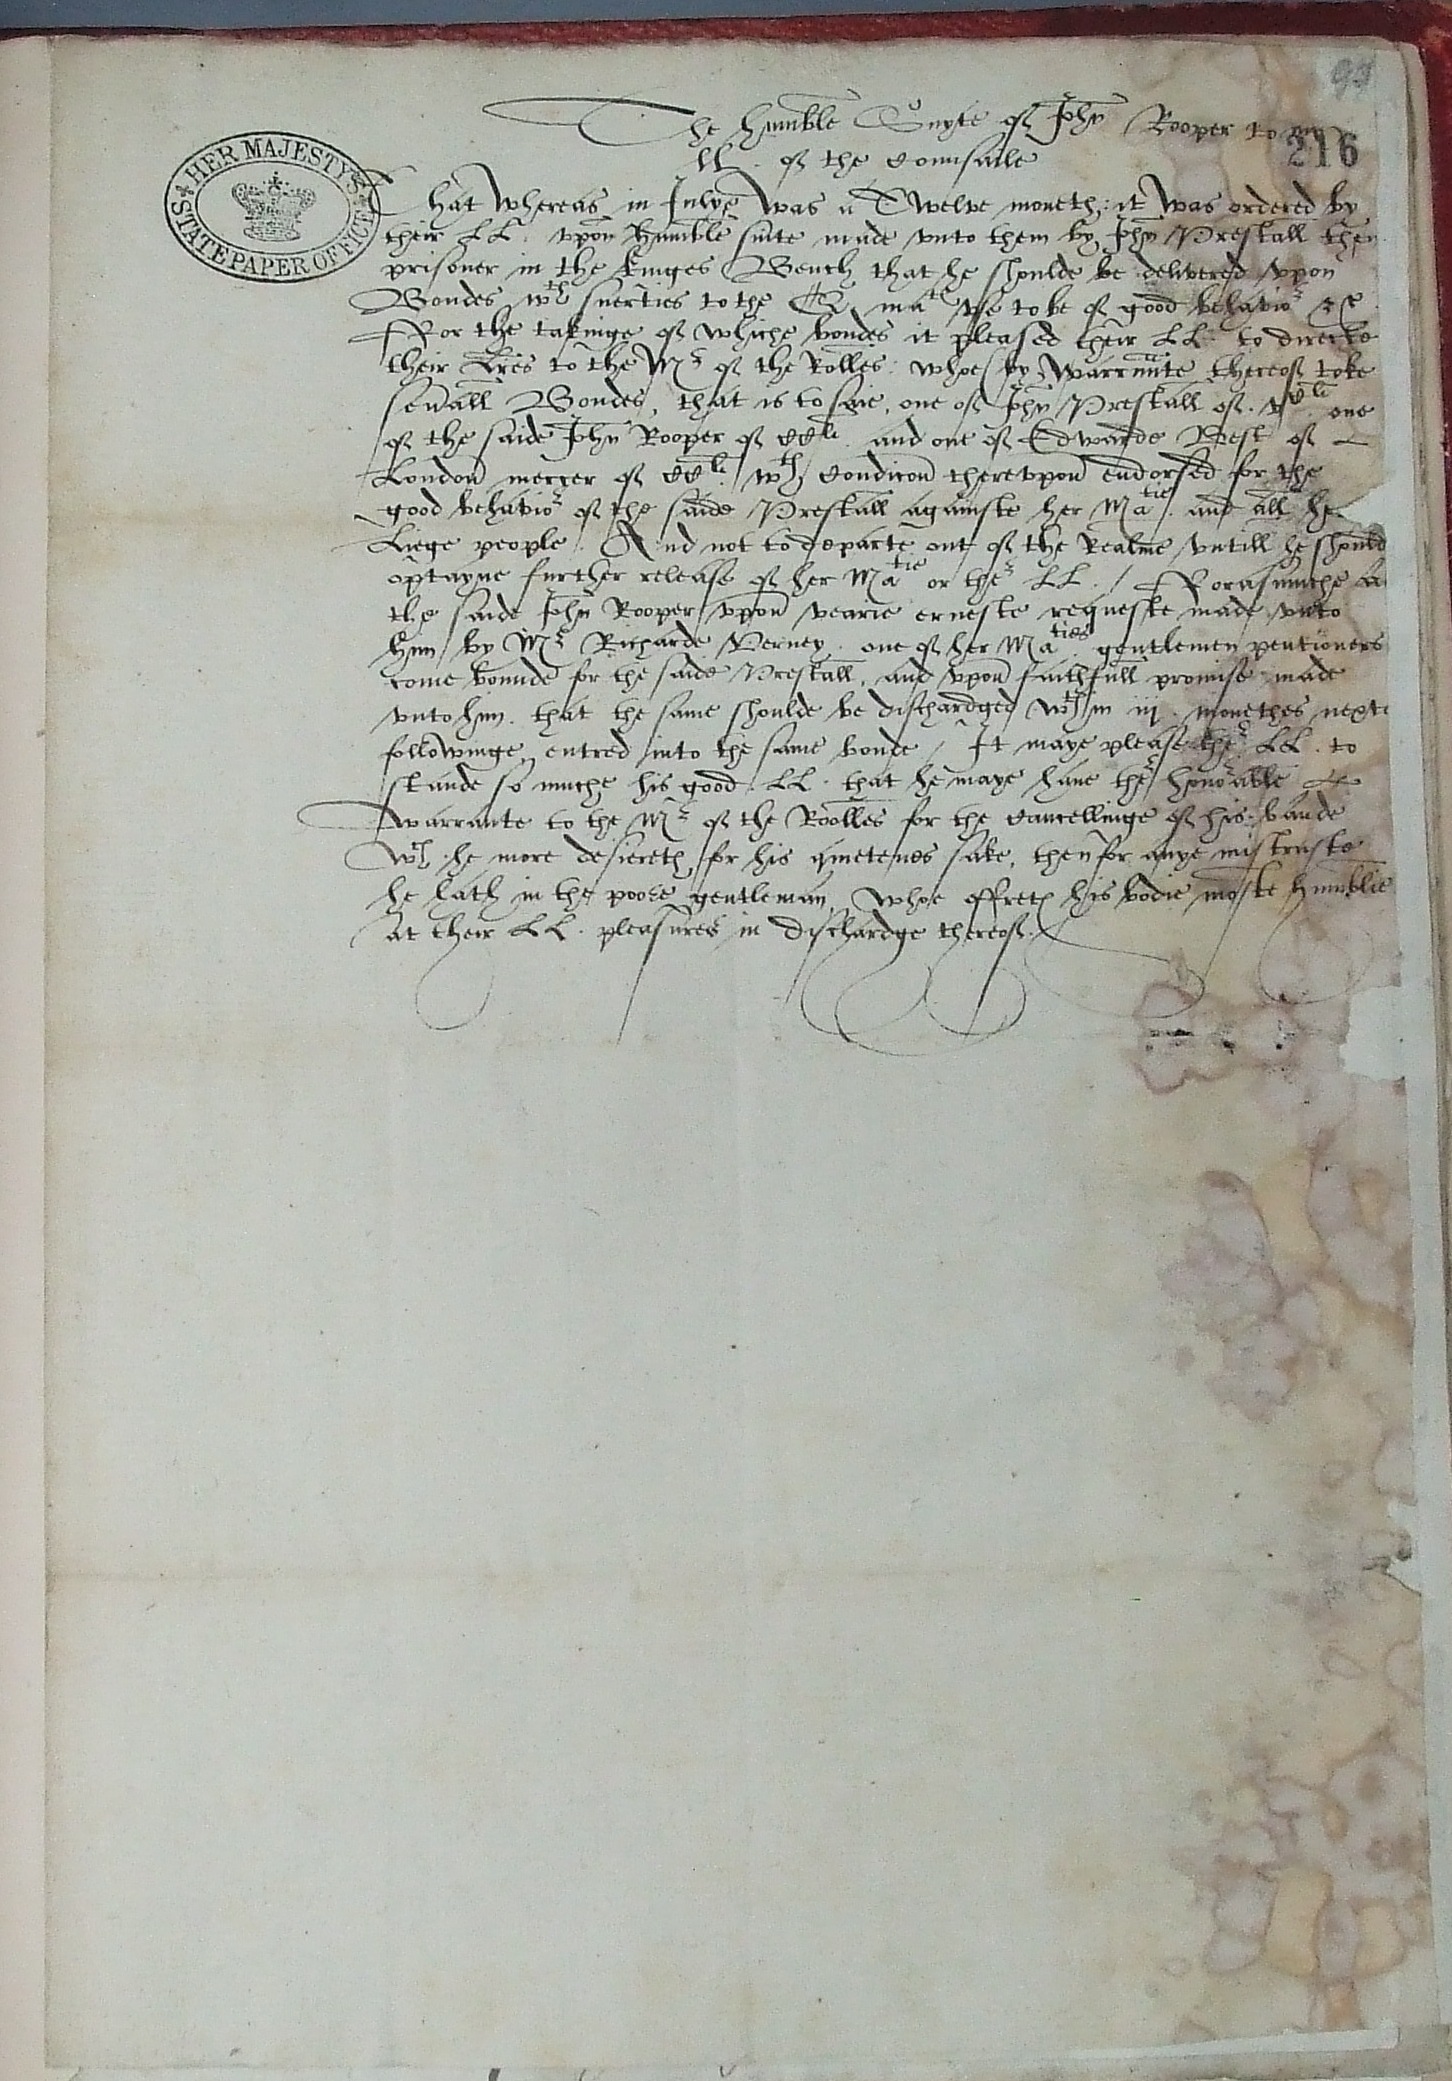 93
216
HER MAJESTY'S STATE PAPER OFFICE
The humble Suyte of John Rooper to
LL. of the Counsaile
That Whereas in Julye Was a Twelve moneth: it Was ordered by
their LL. vpon humble suite made vnto them by John Prestall then
prisoner in the kinges Bench that he shoulde be delivered vpon
Bondes wth suerties to the Q matie vse to be of good behavior &c.
For the takinge of whiche bondes it pleased their LL. to directe
their Lres to the Mr of the Rolles: whoe by Warrante thereof toke
seuall Bondes, that is to saie, one of John Prestall of. vCli one
of the saide John Rooper of CCli. and one of Edwarde Best of
London mercer of CCli. wth Condicon therevpon endorsed for the
good behavior of the saide Prestall againste her Matie. and all he
Liege people. And not to departe out of the Realme vntill he should
optayne further release of her Matie or ther LL. / Forasmuche as
the saide John Rooper vpon vearie erneste requeste made vnto
him by Mr Richarde Verney. one of her Maties. gentlemen pentioners
come bounde for the saide Prestall, and vpon faithfull promise made
vnto him. that the same shoulde be dischardged wthin iij. monethes nexte
followinge, entred into the same bonde / It maye please ther LL. to
stande so muche his good LL. that he maye haue ther honorable
warrante to the Mr of the Roolles for the Cancellinge of his bande
Wch he more desiereth for his quietenes sake, then for anye mistruste
he hath in the poore gentleman, whoe offreth his bodie moste humblie
at their LL. pleasures in dischardge thereof.